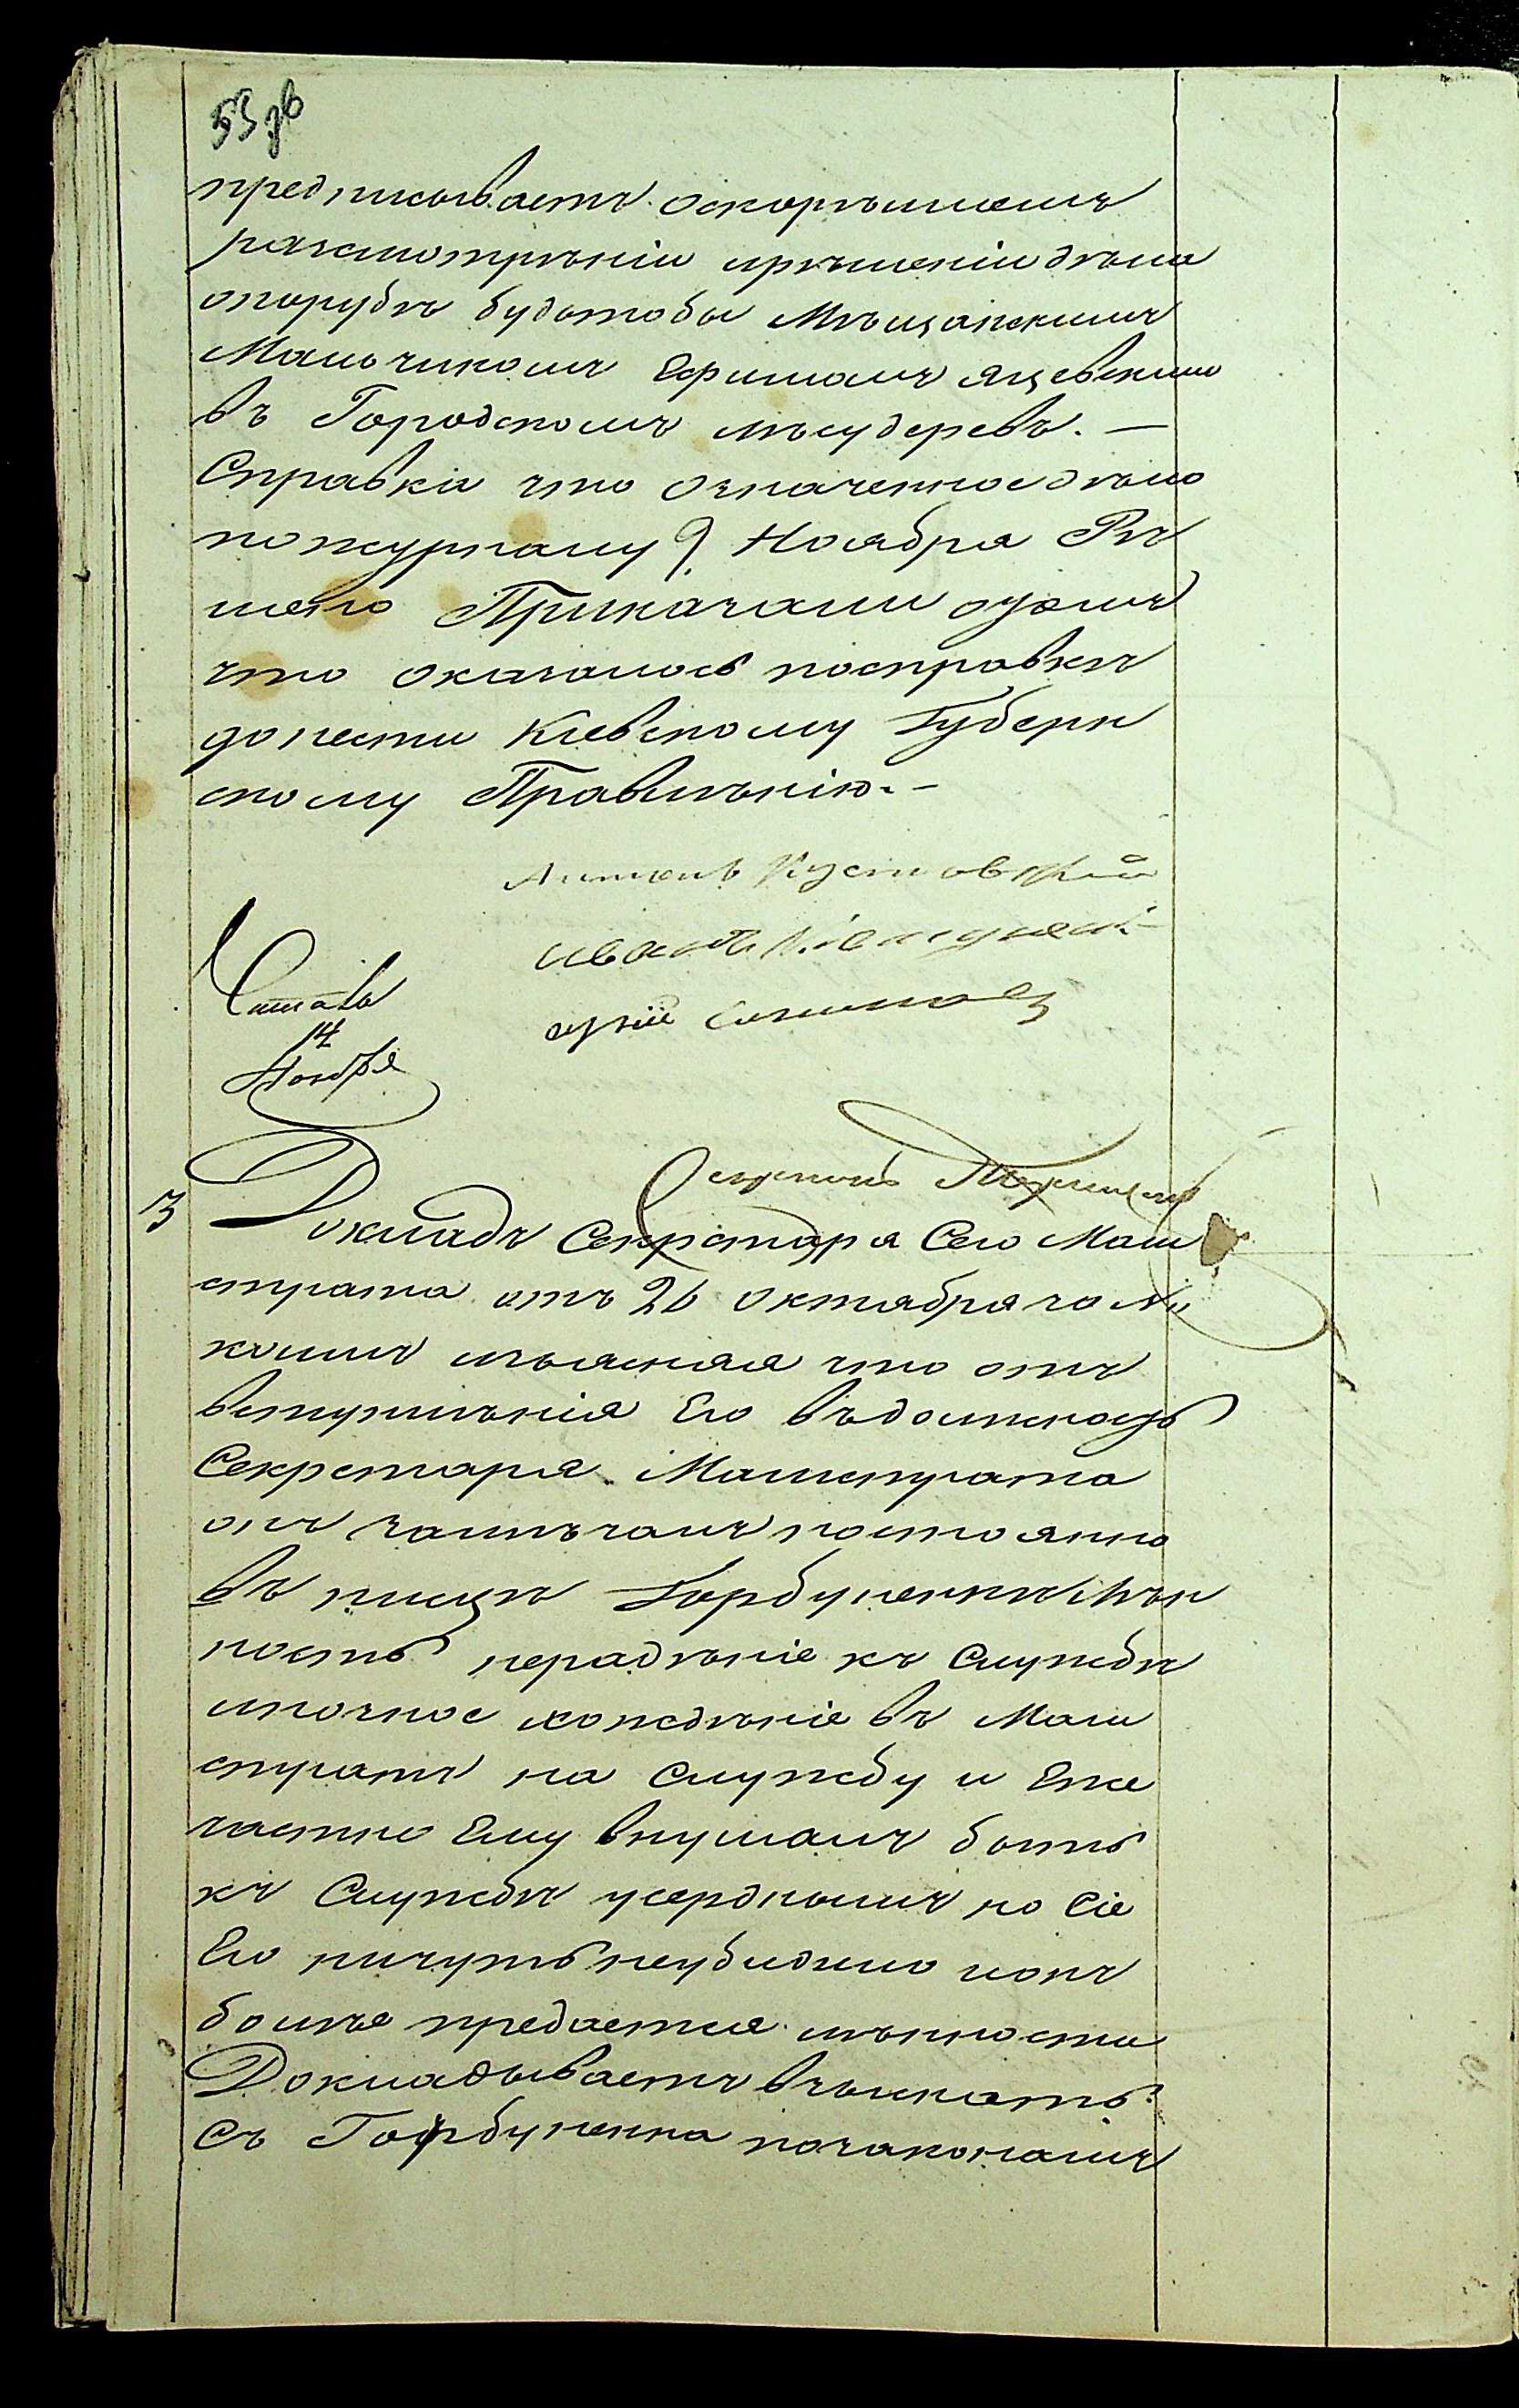 55 об
предписываетъ оскорѣишемъ
разсмотрѣніи ирѣшеніи дѣла
опорубкѣ будьтобы Мѣщанскимъ
Мальчикомъ Ефимомъ Яцевскимъ
въ Городскомъ лѣсу деревъ. —
Справки что означенное дѣло
по журналу 9 Ноября Рѣ
шено Приказали озомъ
что оказалось посправкѣ
донести Кіевскому Губерн
скому Правленію. –
Антонъ Кустовскій
Иванъ
Читалъ
14
Ноября
3 Докладъ Секретаря Сего Маги
страта отъ 26 октября за №
коимъ изъясняя что отъ
вступленія Его въдолжность
Секретаря Магистрата
онъ замѣчалъ постоянно
въ писцѣ Горбуненкѣ лѣн
ность нерадѣніе къ Службѣ
хожденіе въ Маги
стратъ на Службу и Еже
часпно Ему внушалъ быть
къ Службѣ усерднымъ но Сіе
Его ничуть неубидило ионъ
болѣе предается лѣнности
Докладываетъ взыскать
Съ Горбуненка позаконамъ